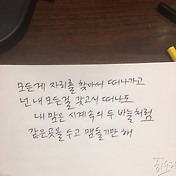 모든게 자리를 찾아서 떠나가고
넌 내 모든걸 갖고서 떠나도
내 맘은 시계속의 두 바늘처럼
같은곳을 두고 맴돌기만 해